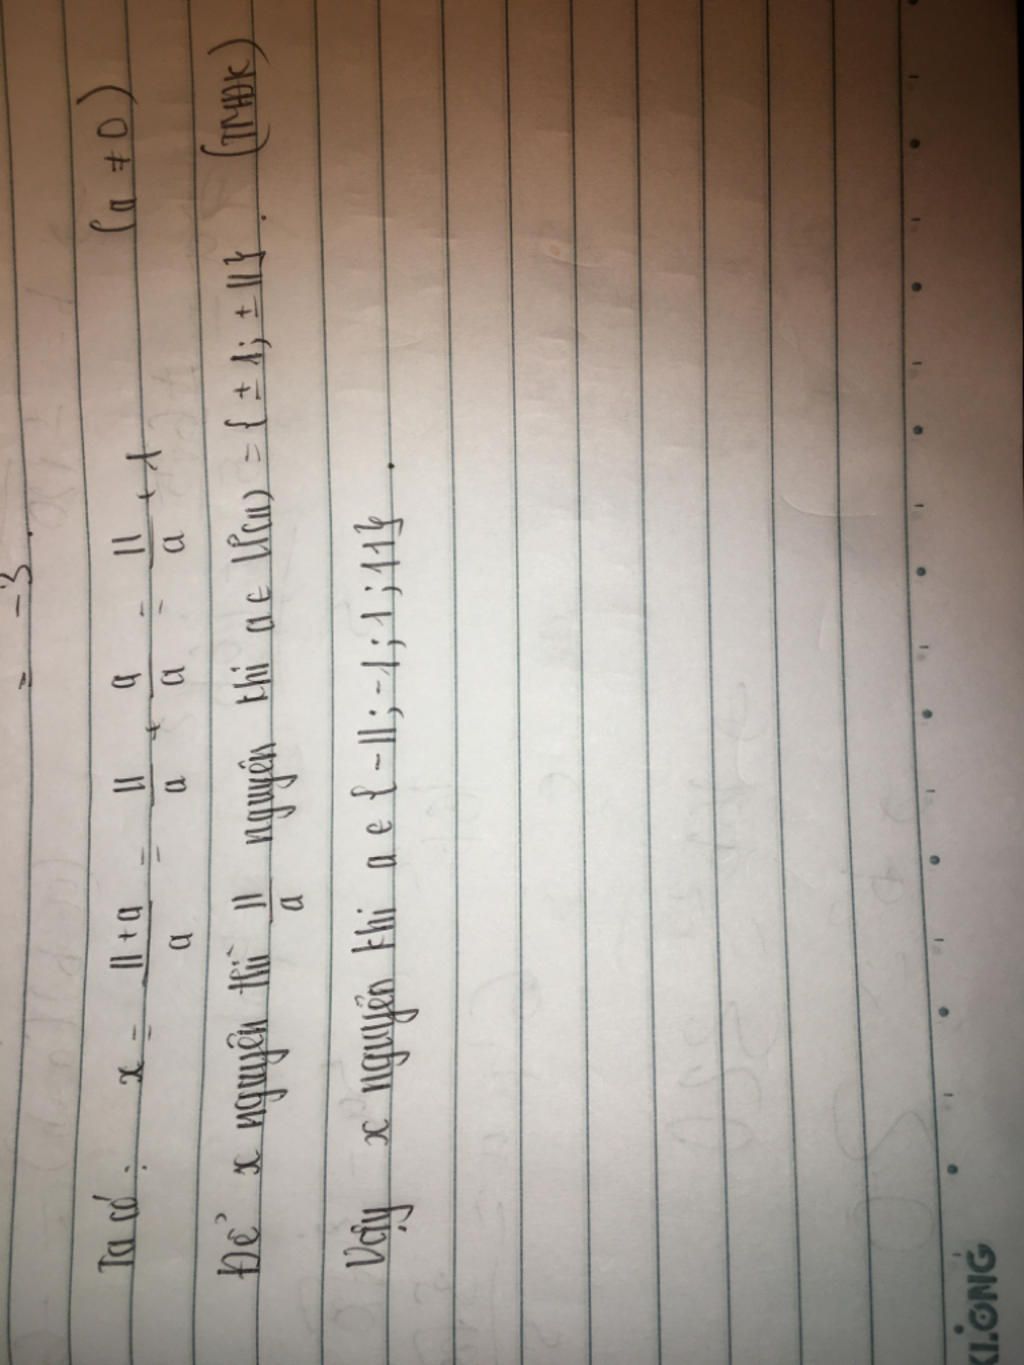 = -3.
Ta có : x = 11+a/a = 11/a + a/a = 11/a + 1 (a ≠ 0)
Để x nguyên thì 11/a nguyên khi a ∈ Ư(11) = { ± 1; ± 11}. (TMĐK)
Vậy x nguyên khi a ∈ { -11; -1; 1; 11}.
KLONG